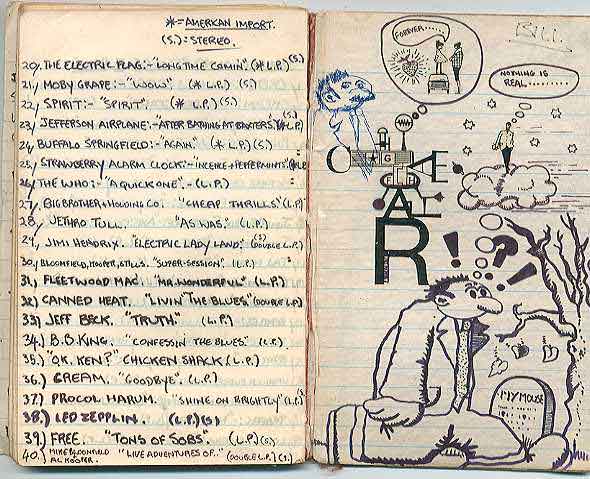 *= AMERICAN IMPORT.
(S.) = STEREO.
20) THE ELECTRIC FLAG:- "LONG TIME COMIN'" (* L.P.) (S.)
21,) MOBY GRAPE:- "WOW" (* L.P.) (S.)
22,) SPIRIT:- "SPIRIT". (* L.P.) (S.)
23,) JEFFERSON AIRPLANE:- "AFTER BATHING AT BAXTERS" (* L.P.) (S.)
24,) BUFFALO SPRINGFIELD:- "AGAIN". (* L.P.) (S.)
25,) STRAWBERRY ALARM CLOCK:- "INCENCE + PEPPERMINTS"
26,) THE WHO:- "A QUICK ONE". - (L.P.)
27,) BIG BROTHER + HOLDING CO. "CHEAP THRILLS" (L.P.)
28,) JETHRO TULL. "AS WAS." (L.P.)
29,) JIMI HENDRIX. "ELECTRIC LADY LAND." (DOUBLE L.P.) (S)
30,) BLOOMFIELD, KOOPER, STILLS. "SUPER-SESSION". (L.P.)
31,) FLEETWOOD MAC. "MR. WONDERFUL" (L.P.)
32) CANNED HEAT. "LIVIN' THE BLUES" (DOUBLE L.P.)
33) JEFF BECK. "TRUTH." (L.P.)
34.) B.B. KING. "CONFESSIN' THE BLUES" (L.P.)
35.) "O.K. KEN?" CHICKEN SHACK (L.P.)
36.) CREAM. "GOODBYE". (L.P.)
37.) PROCOL HARUM. "SHINE ON BRIGHTLY" (L.P.)
38.) LED ZEPPLIN. (L.P.) (S)
39.) FREE. "TONS OF SOBS". (L.P.) (S.)
40.) MIKE BLOOMFIELD AL KOOPER. "LIVE ADVENTURES OF.." (DOUBLE L.P.) (S.)
FOREVER......
BILL.
NOTHING IS
REAL........
R
! ? !
MY MOUSE